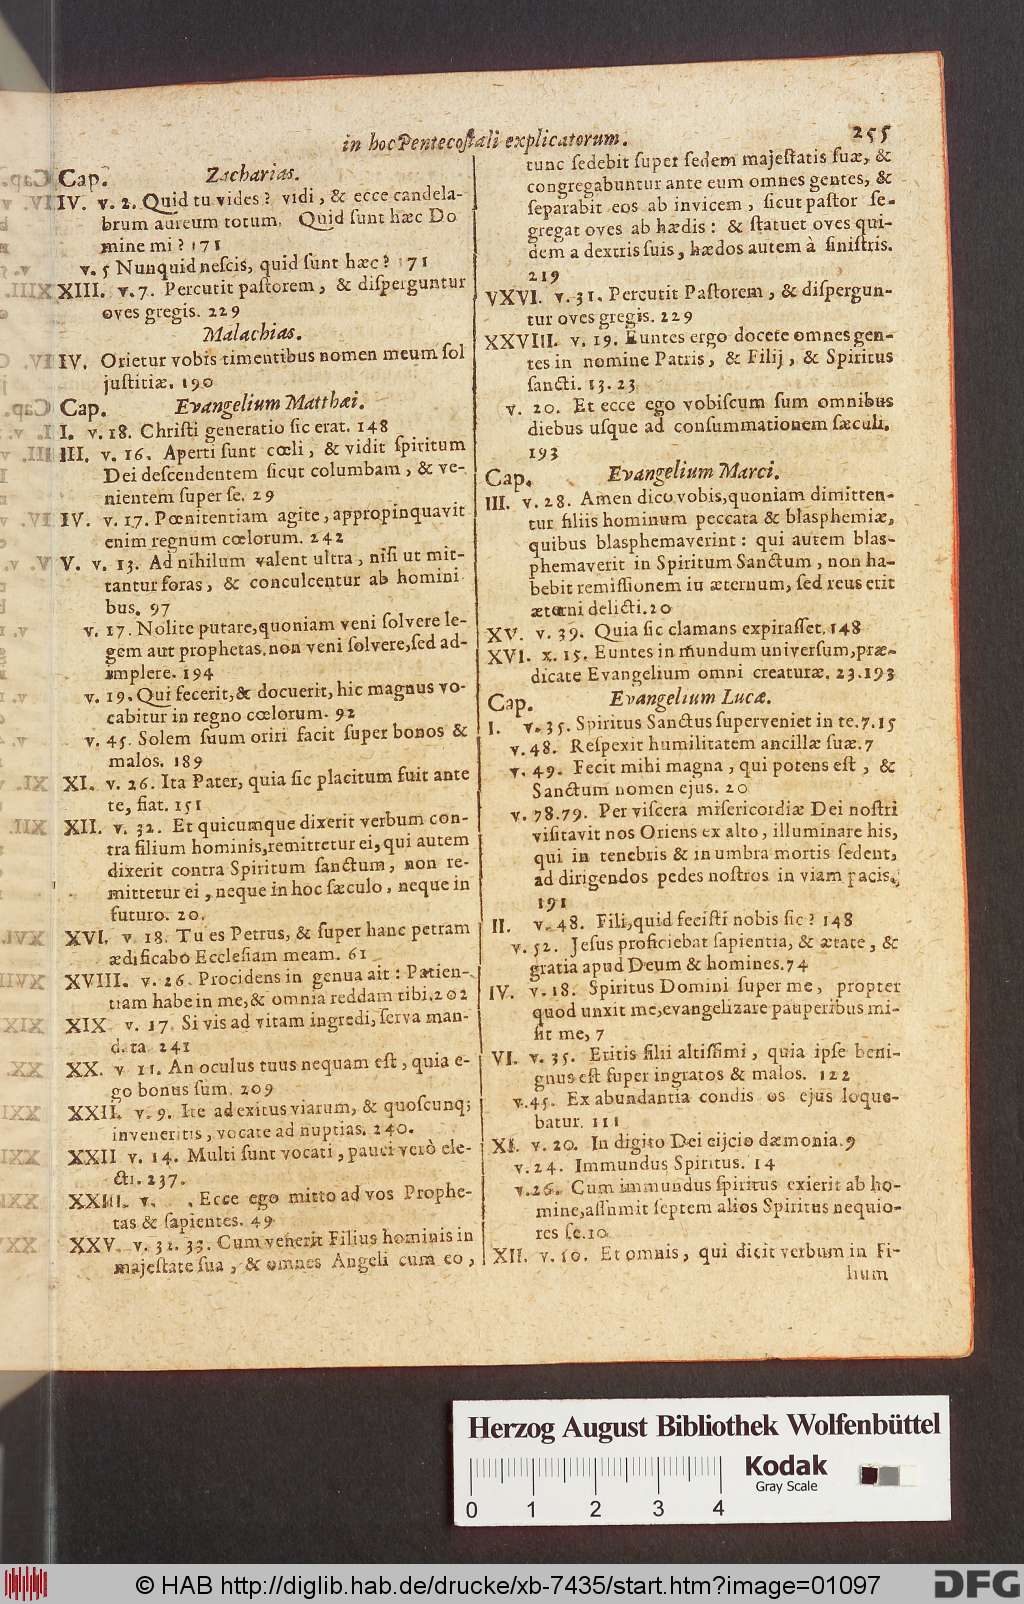 in hoc Pentecostali explicatorum. 255
Cap. Zacharias.
IV. v. 2. Quid tu vides? vidi, & ecce candela-
brum aureum totum. Quid sunt hæc Do
mine mi? 171
v. 5 Nunquid nescis, quid sunt hæc? 171
XIII. v. 7. Percutit pastorem, & disperguntur
oves gregis. 229
Malachias.
IV. Orietur vobis timentibus nomen meum sol
justitiæ. 190
Cap. Evangelium Matthæi.
I. v. 18. Christi generatio sic erat. 148
III. v. 16. Aperti sunt cœli, & vidit spiritum
Dei descendentem sicut columbam, & ve-
nientem super se. 29
IV. v. 17. Pœnitentiam agite, appropinquavit
enim regnum cœlorum. 242
V. v. 13. Ad nihilum valent ultra, nisi ut mit-
tantur foras, & conculcentur ab homini
bus. 97
v. 17. Nolite putare, quoniam veni solvere le-
gem aut prophetas. non veni solvere, sed ad-
implere. 194
v. 19. Qui fecerit, & docuerit, hic magnus vo-
cabitur in regno cœlorum. 92
v. 45. Solem suum oriri facit super bonos &
malos. 189
XI. v. 26. Ita Pater, quia sic placitum fuit ante
te, fiat. 151
XII. v. 32. Et quicumque dixerit verbum con-
tra filium hominis, remittetur ei, qui autem
dixerit contra Spiritum sanctum, non re-
mittetur ei, neque in hoc sæculo, neque in
futuro. 20.
XVI. v 18. Tu es Petrus, & super hanc petram
ædificabo Ecclesiam meam. 61
XVIII. v. 26. Procidens in genua ait: Patien-
tiam habe in me, & omnia reddam tibi. 202
XIX v. 17. Si vis ad vitam ingredi, serva man-
data 241
XX. v 11. An oculus tuus nequam est, quia e-
go bonus sum. 209
XXII. v. 9. Ite ad exitus viarum, & quoscunq;
inveneritis, vocate ad nuptias. 240.
XXII v. 14. Multi sunt vocati, pauci verò ele-
cti. 237.
XXIII. v. . Ecce ego mitto ad vos Prophe-
tas & sapientes. 49
XXV. v. 31. 33. Cum venerit Filius hominis in
majestate sua, & omnes Angeli cum eo,
tunc sedebit super sedem majestatis suæ, &
congregabuntur ante eum omnes gentes, &
separabit eos ab invicem, sicut pastor se-
gregat oves ab hædis: & statuet oves qui-
dem a dextris suis, hædos autem à sinistris.
219
VXVI. v. 31. Percutit Pastorem, & dispergun-
tur oves gregis. 229
XXVIII. v. 19. Euntes ergo docete omnes gen-
tes in nomine Patris, & Filij, & Spiritus
sancti. 13. 23
v. 20. Et ecce ego vobiscum sum omnibus
diebus usque ad consummationem sæculi.
193
Cap. Evangelium Marci.
III. v. 28. Amen dico vobis, quoniam dimitten-
tur filiis hominum peccata & blasphemiæ,
quibus blasphemaverint: qui autem blas-
phemaverit in Spiritum Sanctum, non ha-
bebit remissionem in æternum, sed reus erit
æterni delicti. 20
XV. v. 39. Quia sic clamans expirasset. 148
XVI. x. 15. Euntes in mundum universum, præ-
dicate Evangelium omni creaturæ. 23. 193
Cap. Evangelium Lucæ.
I. v. 35. Spiritus Sanctus superveniet in te. 7. 15
v. 48. Respexit humilitatem ancillæ suæ. 7
v. 49. Fecit mihi magna, qui potens est, &
Sanctum nomen ejus. 20
v. 78. 79. Per viscera misericordiæ Dei nostri
visitavit nos Oriens ex alto, illuminare his,
qui in tenebris & in umbra mortis sedent,
ad dirigendos pedes nostros in viam pacis.
191
II. v. 48. Fili, quid fecisti nobis sic? 148
v. 52. Jesus proficiebat sapientia, & ætate, &
gratia apud Deum & homines. 74
IV. v. 18. Spiritus Domini super me, propter
quod unxit me, evangelizare pauperibus mi-
sit me, 7
VI. v. 35. Eritis filii altissimi, quia ipse beni-
gnus est super ingratos & malos. 122
v. 45. Ex abundantia condis os ejus loque-
batur. 111
XI. v. 20. In digito Dei eijcio dæmonia. 9
v. 24. Immundus Spiritus. 14
v. 26. Cum immundus spiritus exierit ab ho-
mine, assumit septem alios Spiritus nequio-
res se. 10
XII. v. 10. Et omnis, qui dicit verbum in Fi-
lium
Herzog August Bibliothek Wolfenbüttel
Kodak
Gray Scale
0 1 2 3 4
© HAB http://diglib.hab.de/drucke/xb-7435/start.htm?image=01097
DFG